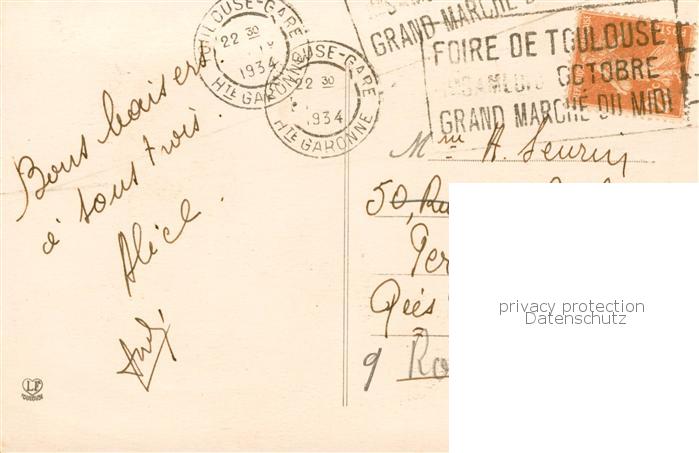 TOULOUSE-GARE
22 30
1934
HTE GARONNE
TOULOUSE-GARE
22 30
1934
HTE GARONNE
GRAND MARCHÉ D
FOIRE DE TOULOUSE
OCTOBRE
GRAND MARCHÉ DU MIDI
Bons baisers
à tous trois.
Alice.
LF
TOULOUSE
Mme A. Seurin
50, Ru
Per
Près
9 Ro
privacy protection
Datenschutz